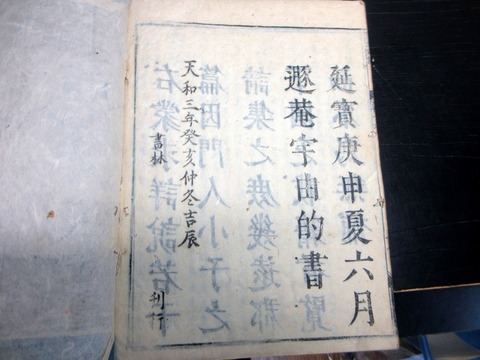 延寳庚申夏六月
遯菴宇由的書
天和三年癸亥仲冬吉辰
書林
刊行